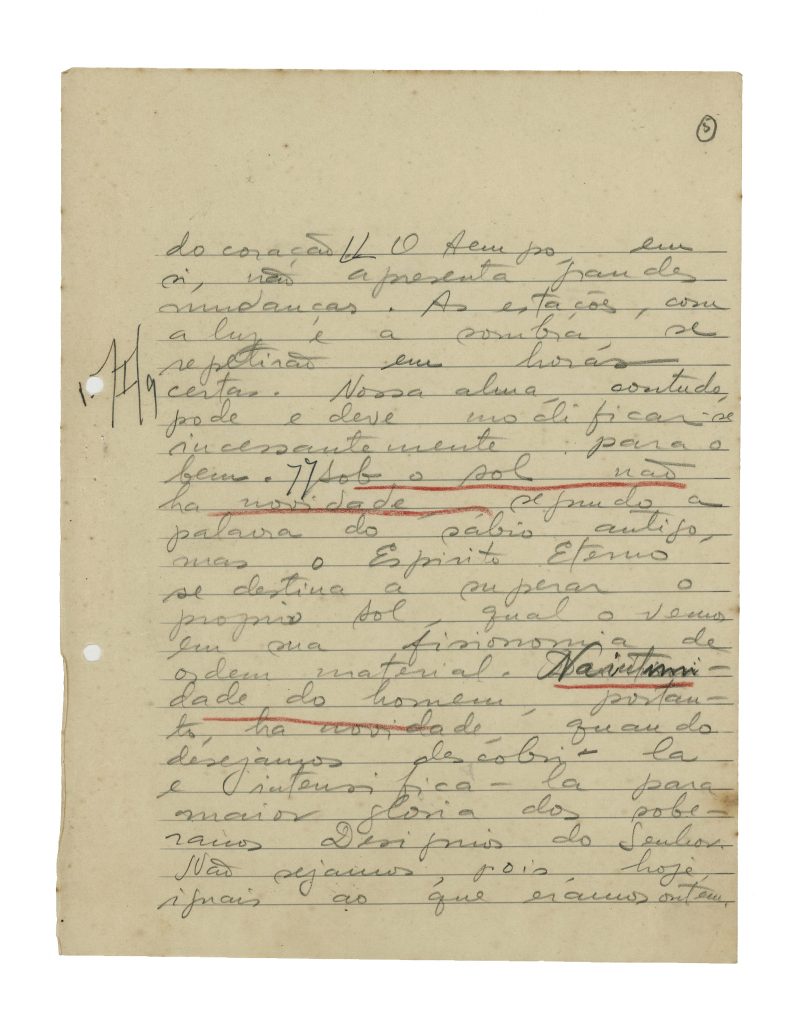 5
do coração!! O tempo, em
si, não apresenta grandes
mudanças. As estações, com
a luz e a sombra, se
repetirão em horas
certas. Nossa alma, contudo,
pode e deve modificar-se
incessantemente para o
bem. Sob o sol não
ha novidade, segundo a
palavra do sábio antigo,
mas o Espirito Eterno
se destina a superar o
proprio sol, qual o vemos
em sua fisionomia de
ordem material. Na intimi-
dade do homem, portan-
to, ha novidade, quando
desejamos descobri-la
e intensifica-la para
maior gloria dos sobe-
ranos Designios do Senhor.
Não sejamos, pois, hoje,
iguais ao que eramos ontem.